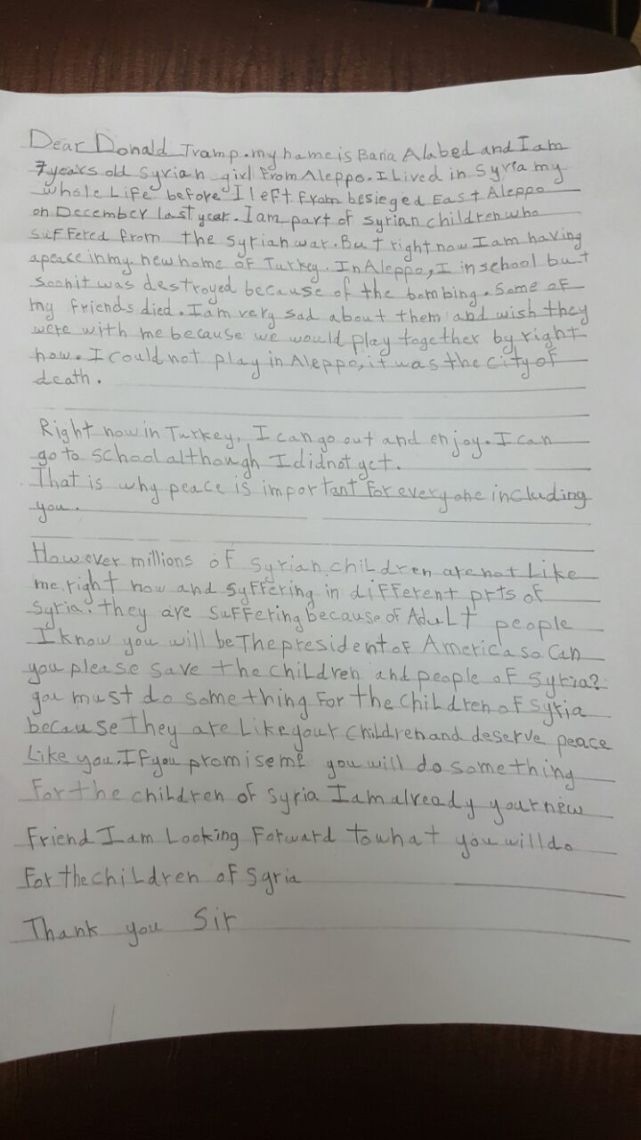 Dear Donald Tramp. my name is Bana Alabed and I am
7 years old Syrian girl from Aleppo. I Lived in Syria my
whole Life before I left from besieged East Aleppo
on December last year. I am part of Syrian children who
suffered from the Syrian war. But right now I am having
a peace in my new home of Turkey. In Aleppo, I in school but
soon it was destroyed because of the bombing. Some of
my friends died. I am very sad about them and wish they
were with me because we would play together by right
now. I could not play in Aleppo, it was the city of
death.
Right now in Turkey, I can go out and enjoy. I can
go to school although I didnot yet.
That is why peace is important for everyone including
you.
However millions of Syrian children are not Like
me right now and syffering in different prts of
Syria. they are suffering because of AduLt people
I know you will be The president of America so Can
you please save the children and people of Syria?
you must do something For the Children of Syria
because they are Like your Children and deserve peace
Like you. If you promise me you will do something
for the children of Syria I am already your new
Friend I am Looking Forward to what you will do
For the chiLdren of Syria
Thank you Sir